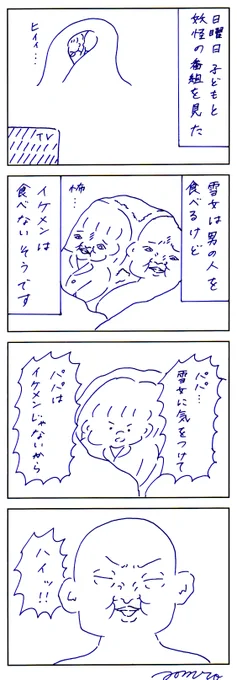 日曜日 子どもと
妖怪の番組を見た
ヒィィ…
TV
雪女は男の人を
食べるけど
怖…
イケメンは
食べないそうです
パパ…
雪女に気をつけて
パパは
イケメンじゃないから
ハイッ!!